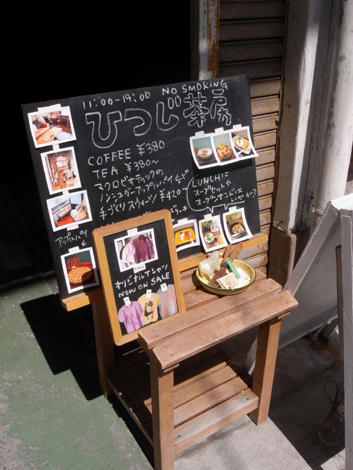 11:00-19:00 NO SMOKING
ひつじ茶房
COFFEE ¥390
TEA ¥390~
マクロビオティックの
ノンシュガーアップルパイなど
手づくりスウィーツ ¥420~
LUNCHに
スープセットや
スープランチ
オリジナルTシャツ
NOW ON SALE